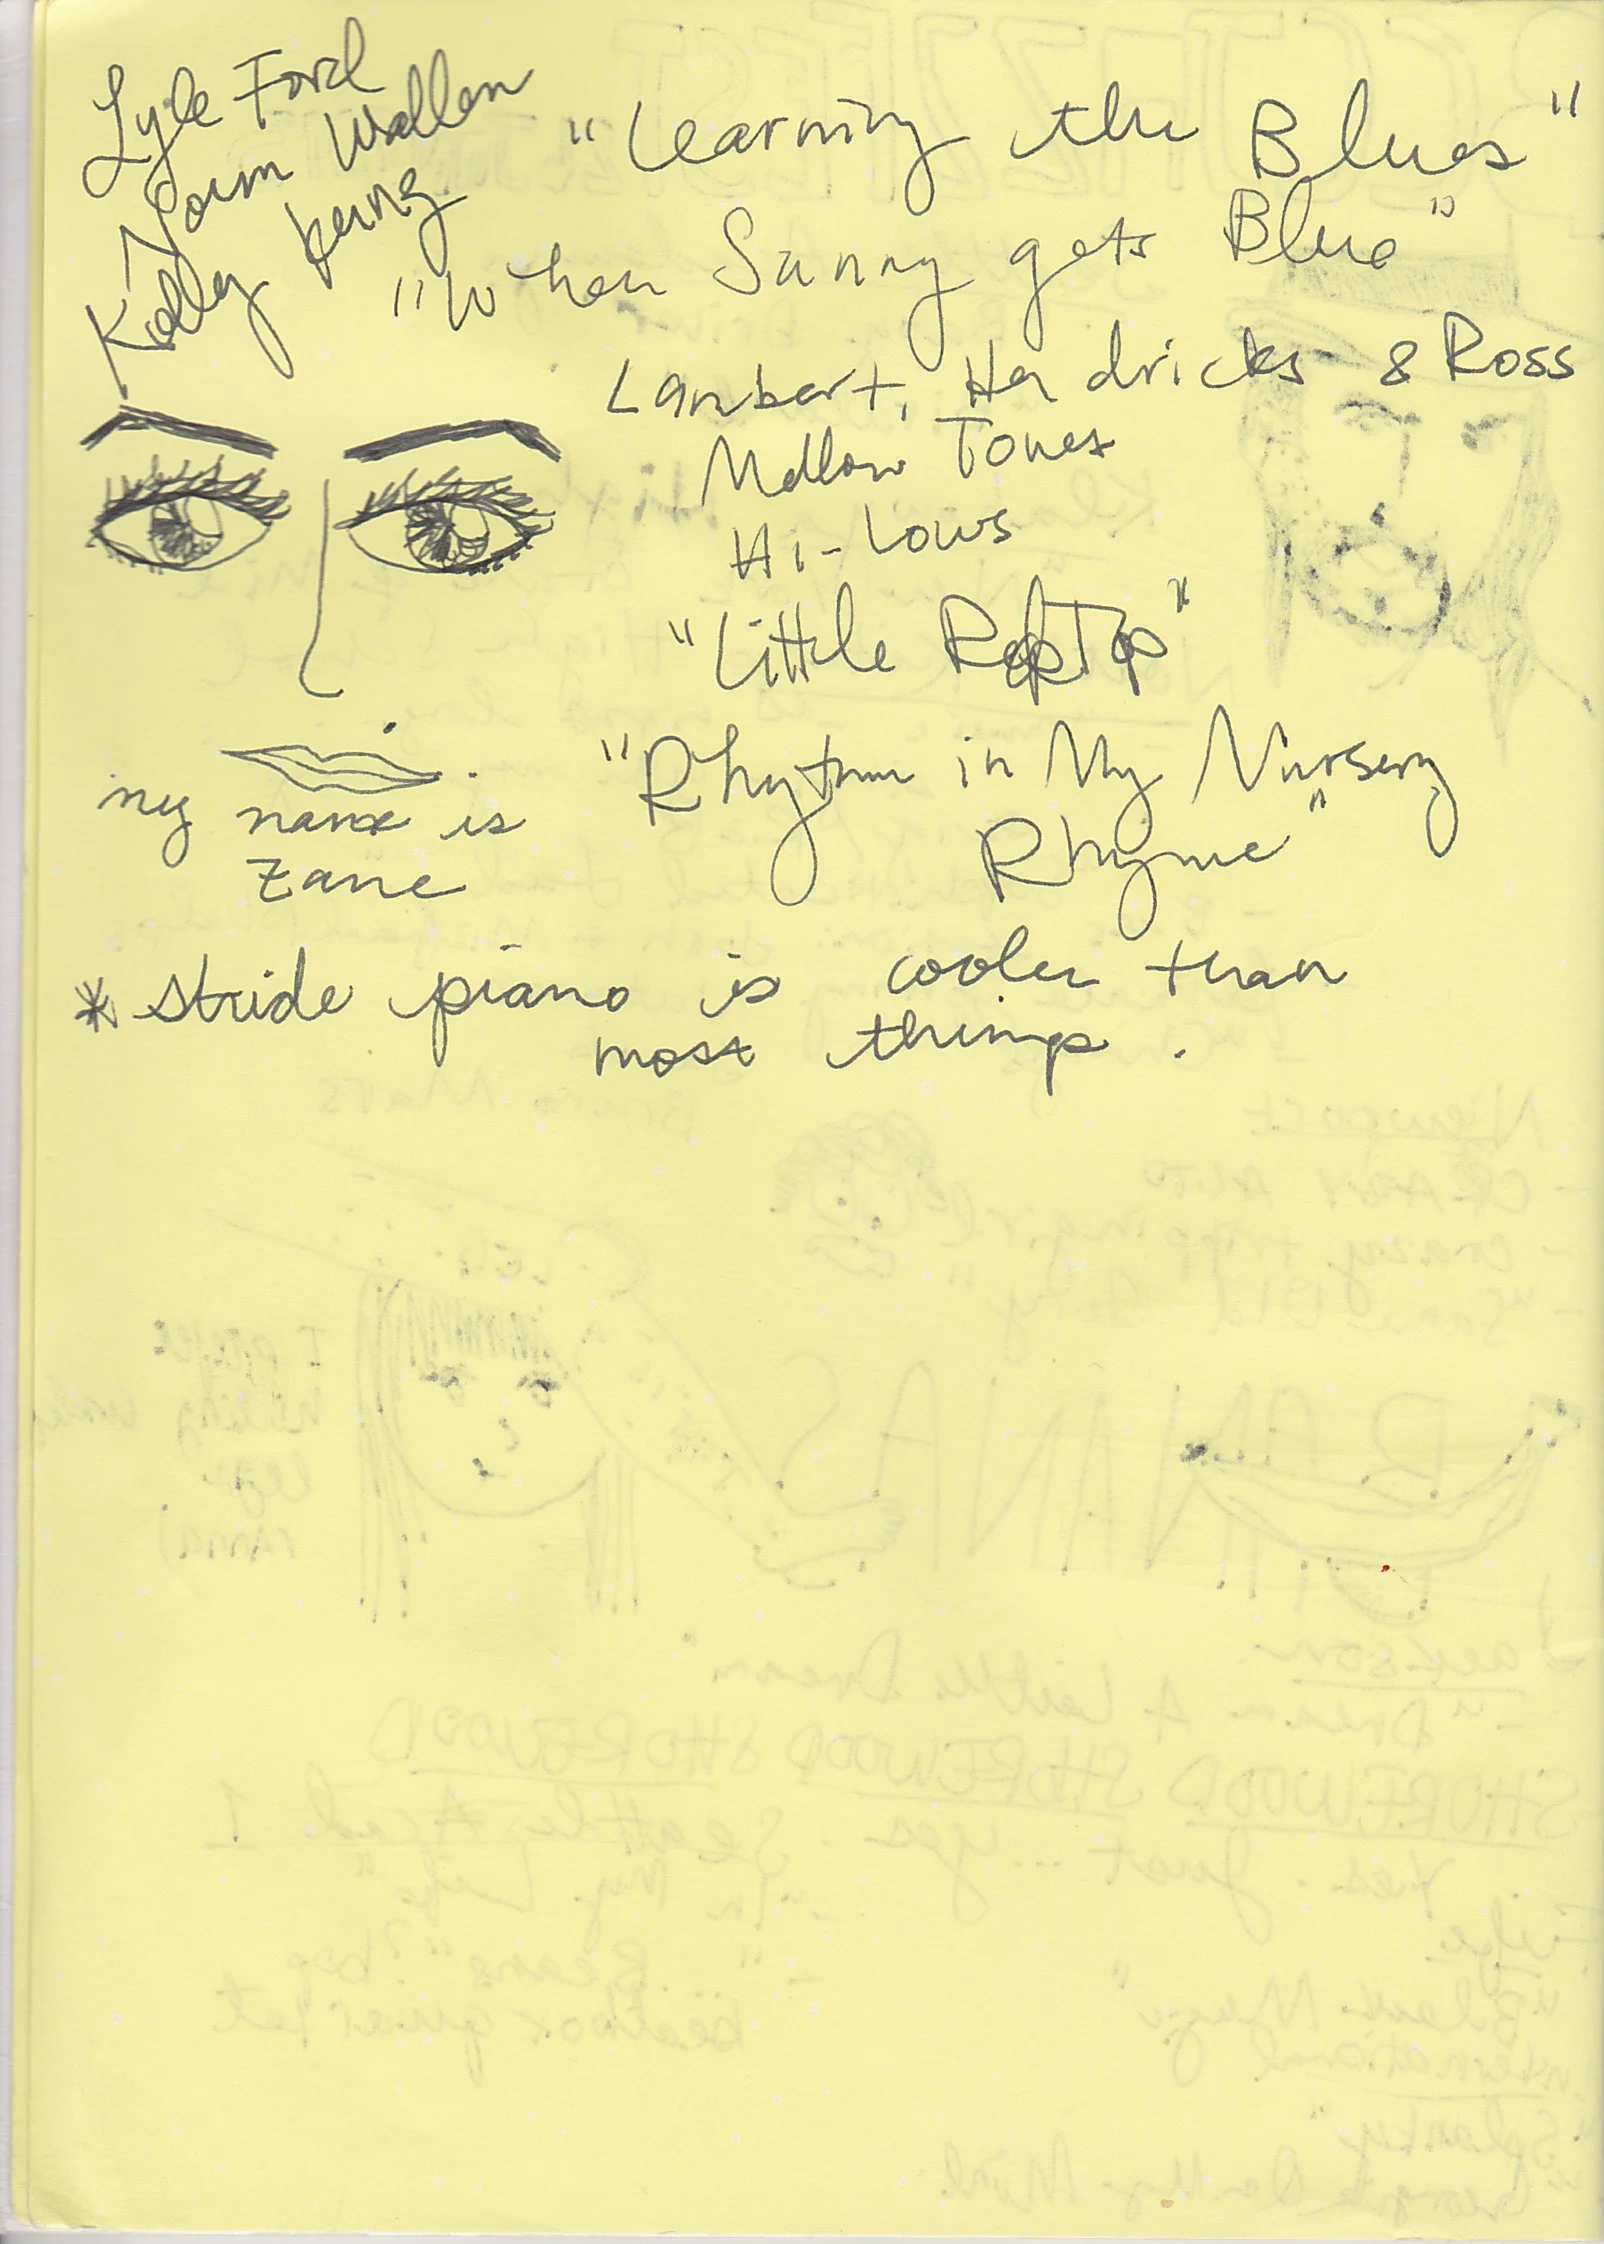 Lyle Ford
Norm Wallen
Kelly
"Learning the Blues"
"When Sunny gets Blue"
Lambert, Hendricks & Ross
Mellow Tones
Hi-Lows
"Little
"Rhythm in My Nursery
Rhyme"
my name is
Zane
* stride piano is cooler than
most things.